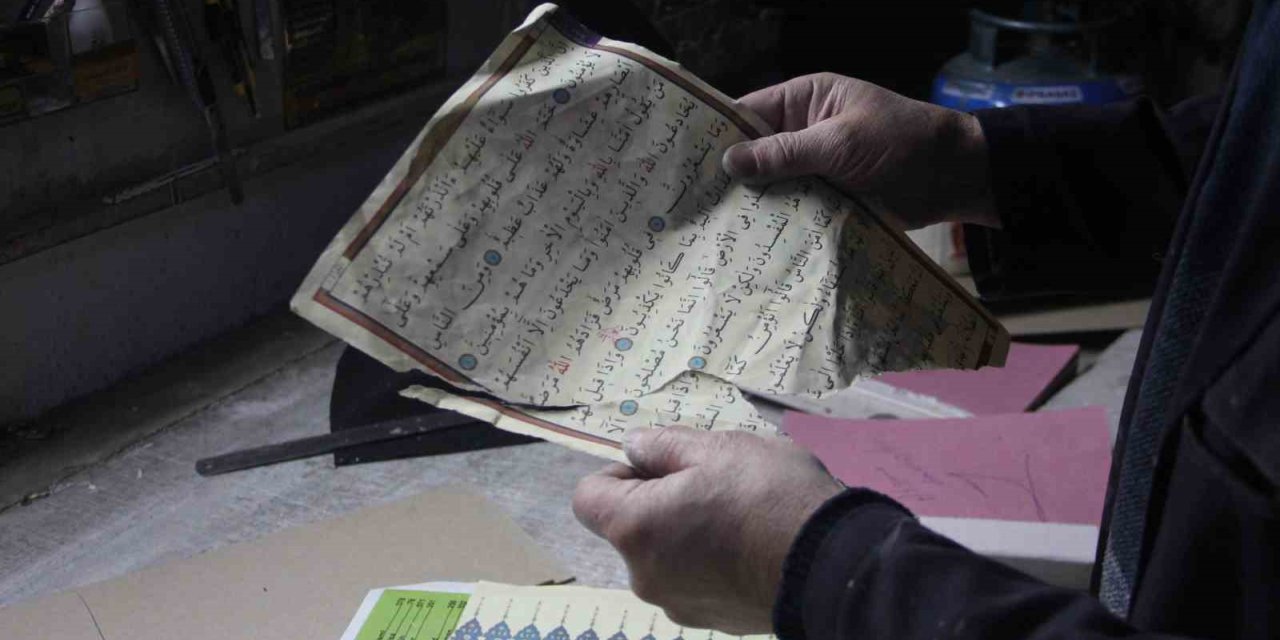 الَّذِينَ كَفَرُوا سَوَاءٌ عَلَيْهِمْ ءَاَنْذَرْتَهُمْ اَمْ لَمْ تُنْذِرْهُمْ
لَا يُؤْمِنُونَ خَتَمَ اللّٰهُ عَلٰى قُلُوبِهِمْ وَعَلٰى سَمْعِهِمْ وَعَلٰى
اَبْصَارِهِمْ غِشَاوَةٌ وَلَهُمْ عَذَابٌ عَظِيمٌ وَمِنَ النَّاسِ
مَنْ يَقُولُ اٰمَنَّا بِاللّٰهِ وَبِالْيَوْمِ الْاٰخِرِ وَمَا هُمْ بِمُؤْمِنِينَ
يُخَادِعُونَ اللّٰهَ وَالَّذِينَ اٰمَنُوا وَمَا يَخْدَعُونَ اِلَّا اَنْفُسَهُمْ
وَمَا يَشْعُرُونَ فِى قُلُوبِهِمْ مَرَضٌ فَزَادَهُمُ اللّٰهُ مَرَضًا
اَلِيمٌ بِمَا كَانُوا يَكْذِبُونَ وَاِذَا قِيلَ لَهُمْ
تُفْسِدُوا فِى الْاَرْضِ قَالُوا اِنَّمَا نَحْنُ مُصْلِحُونَ اَلَا
هُمُ الْمُفْسِدُونَ وَلٰكِنْ لَا يَشْعُرُونَ وَاِذَا قِيلَ
كَمَا اٰمَنَ النَّاسُ قَالُوا اَنُؤْمِنُ كَمَا اٰمَنَ السُّفَهَاءُ
السُّفَهَاءُ وَلٰكِنْ لَا يَعْلَمُونَ